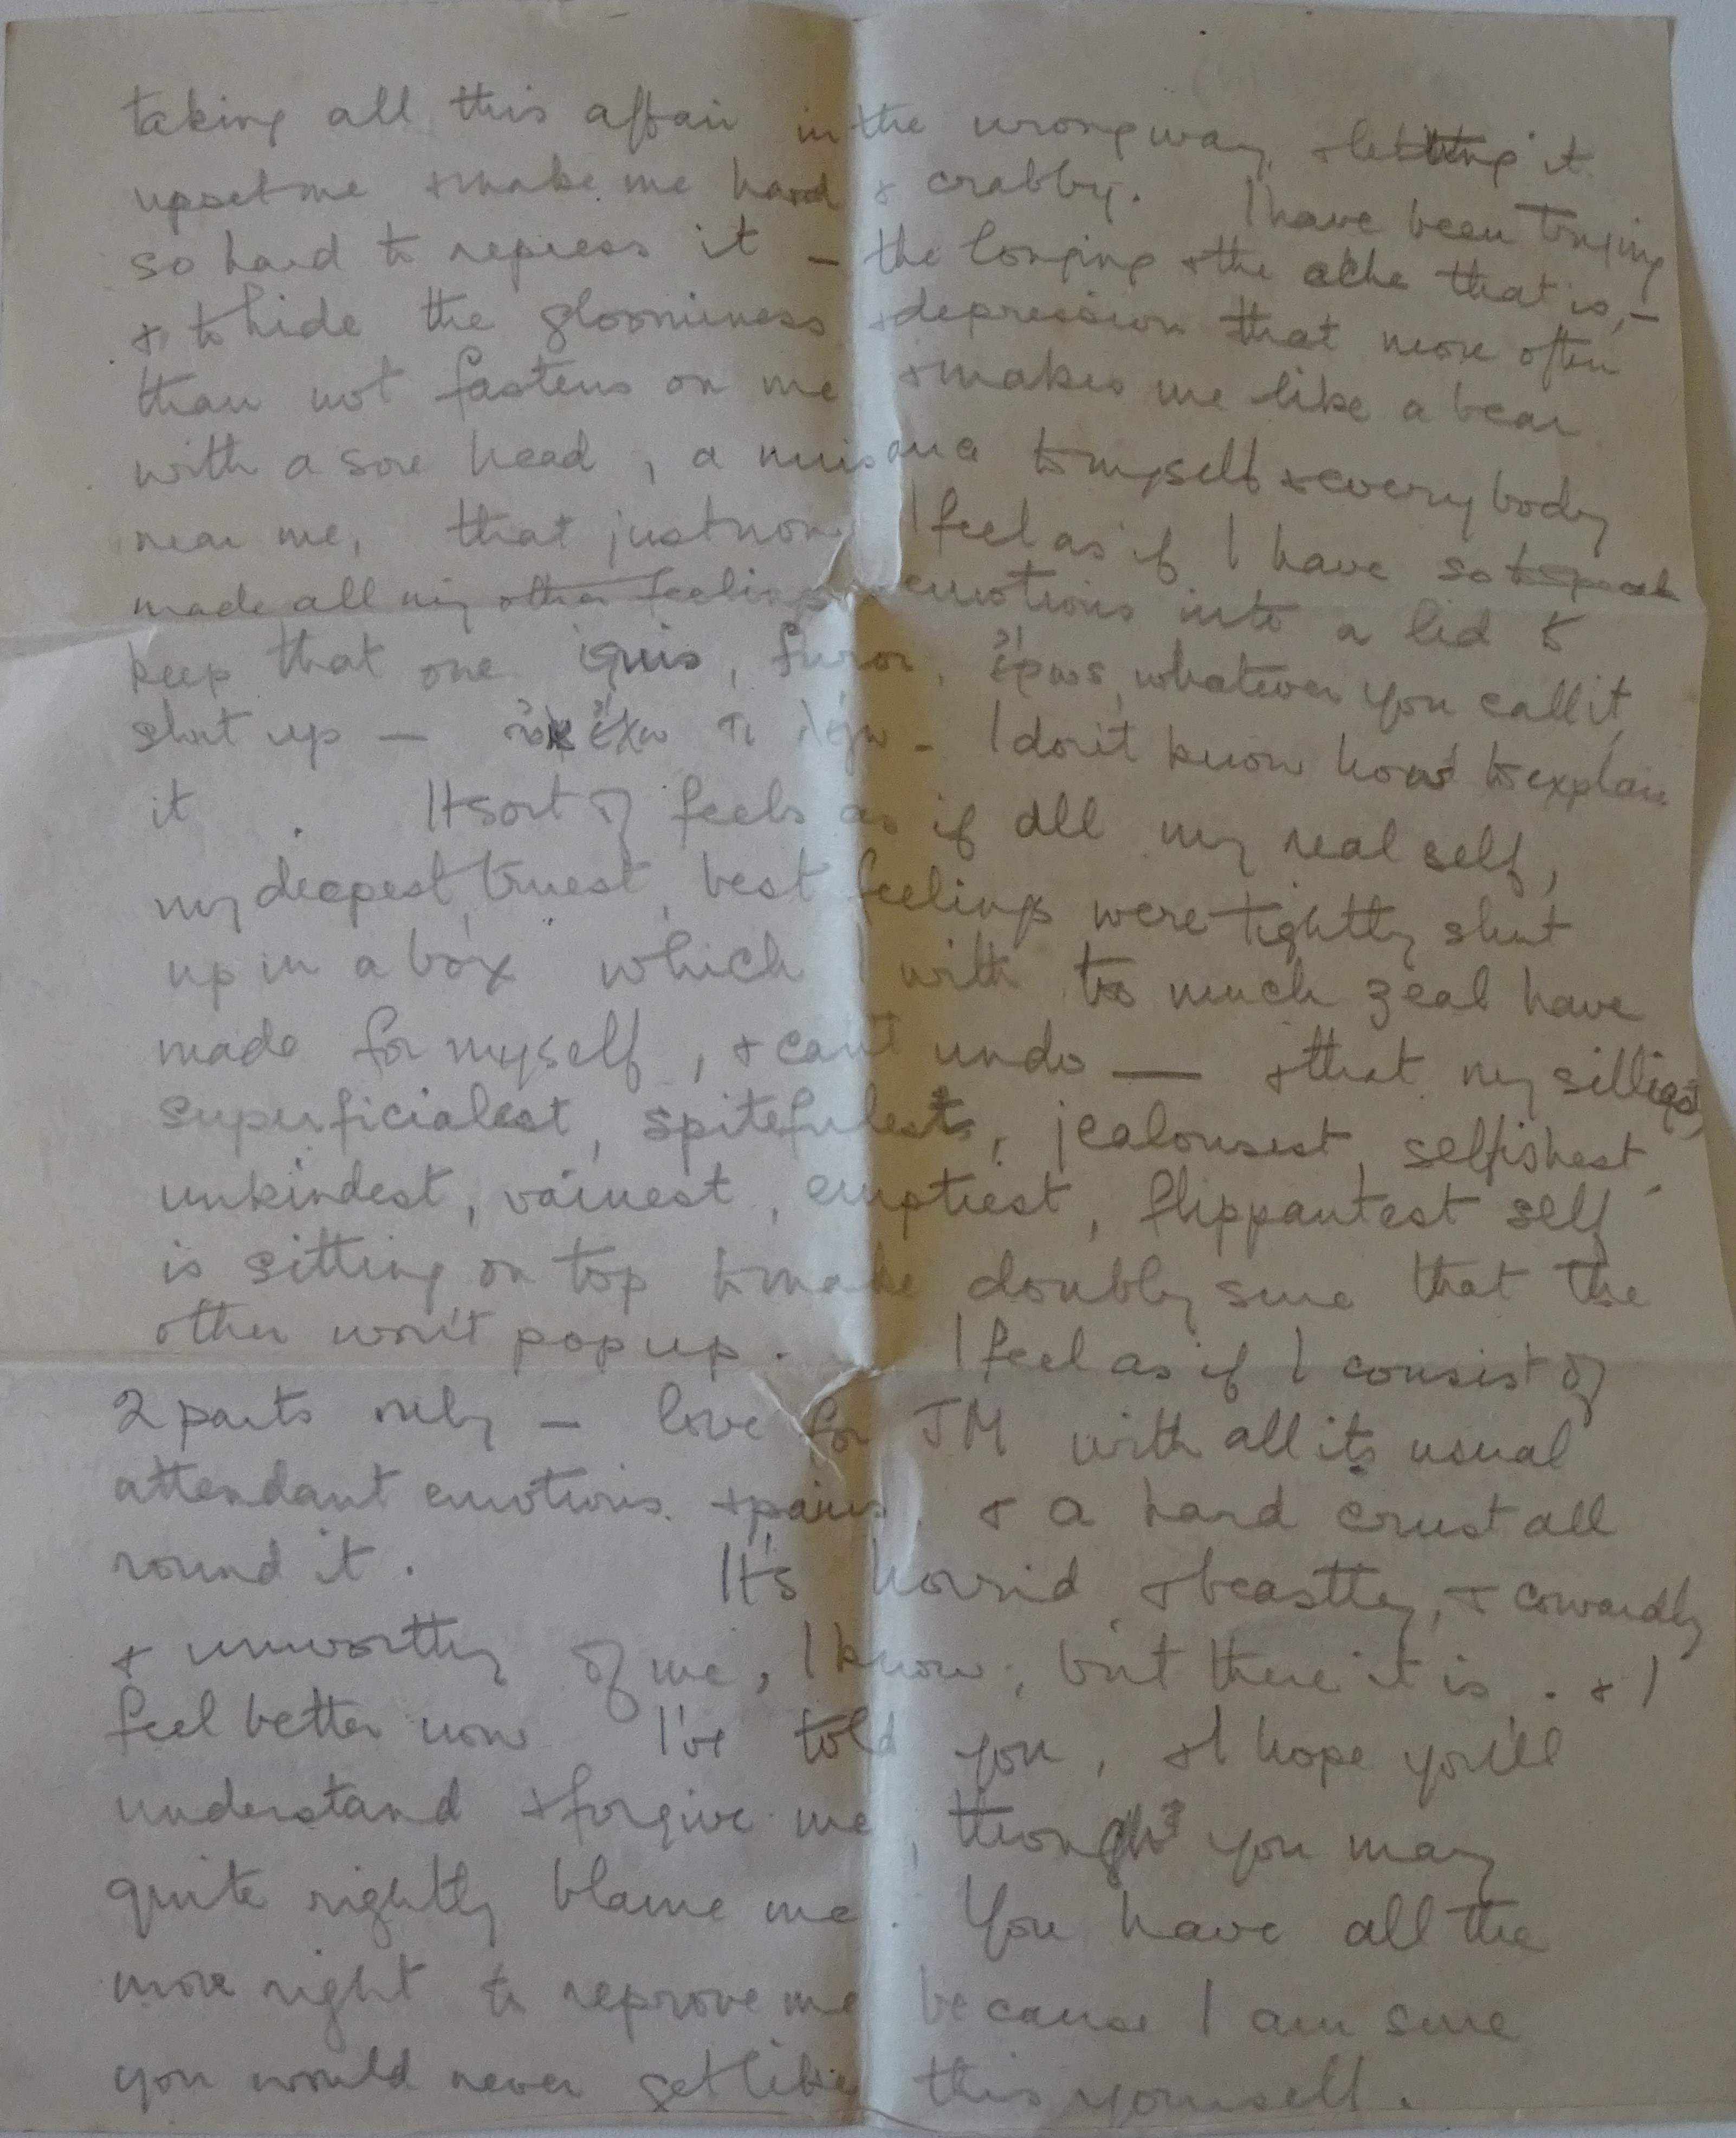 taking all this affair in the wrong way, & letting it
upset me & make me hard & crabby. I have been trying
so hard to repress it – the longing & the ache that is, –
& to hide the gloominess & depression that more often
than not fastens on me & makes me like a bear
with a sore head, a nuisance to myself & everybody
near me, that just now I feel as if I have so to speak
made all my other feelings emotions into a lid to
keep that one ignis, furor, ἔρως, whatever you call it,
shut up — οὐκ ἔχω τι λέγω – I don't know how to explain
it. It sort of feels as if all my real self,
my deepest, truest, best feelings were tightly shut
up in a box which I with too much zeal have
made for myself, & can't undo — & that my silliest,
superficialest, spitefulest, jealousest, selfishest,
unkindest, vainest, emptiest, flippantest self
is sitting on top to make doubly sure that the
other won't pop up. I feel as if I consist of
2 parts only – love for JM with all its usual
attendant emotions & pains, & a hard crust all
round it. It's horrid, & beastly, & cowardly
& unworthy of me, I know, but there it is. & I
feel better now I've told you, & I hope you'll
understand & forgive me, though you may
quite rightly blame me. You have all the
more right to reprove me because I am sure
you would never get like this yourself.